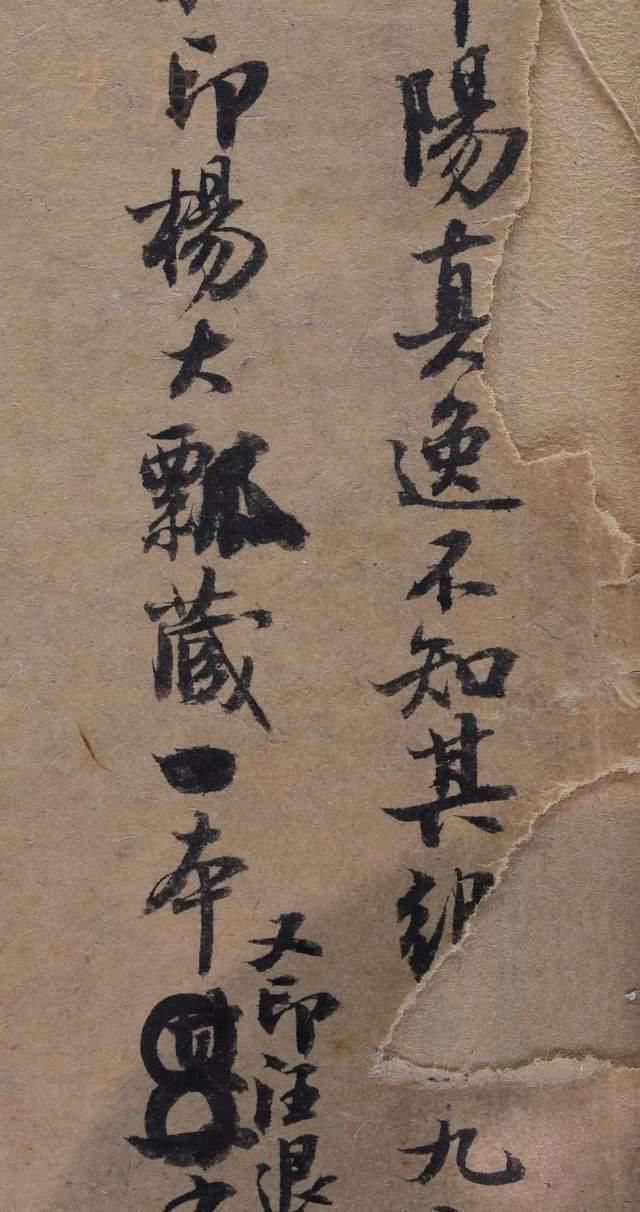 陽真逸不知其 九
印楊大瓢藏一本
又印汪退